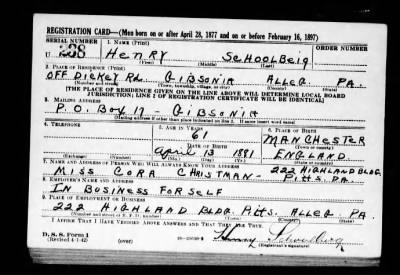 REGISTRATION CARD—(Men born on or after April 28, 1877 and on or before February 16, 1897)
SERIAL NUMBER
1. NAME (Print)
U
HENRY SCHOOLBEIG
(First) (Middle) (Last)
2. PLACE OF RESIDENCE (Print)
OFF DICKEY RD. GIBSONIA ALLEG. PA.
(Number and street) (Town, township, village, or city) (County) (State)
[THE PLACE OF RESIDENCE GIVEN ON THE LINE ABOVE WILL DETERMINE LOCAL BOARD
JURISDICTION; LINE 2 OF REGISTRATION CERTIFICATE WILL BE IDENTICAL]
3. MAILING ADDRESS
P.O. BOX 17 - GIBSONIA
[Mailing address if other than place indicated on line 2. If same insert word same]
4. TELEPHONE
5. AGE IN YEARS
61
6. PLACE OF BIRTH
MANCHESTER
DATE OF BIRTH
(Town or county)
April 13 1881
ENGLAND
(Exchange) (Number) (Mo.) (Day) (Yr.) (State or country)
7. NAME AND ADDRESS OF PERSON WHO WILL ALWAYS KNOW YOUR ADDRESS
222 HIGHLAND BLDG.
MISS CORA CHRISTMAN - PITTS. PA.
8. EMPLOYER'S NAME AND ADDRESS
IN BUSINESS FOR SELF
9. PLACE OF EMPLOYMENT OR BUSINESS
222 HIGHLAND BLDG. PITTS. ALLEG. PA.
(Number and street or R. F. D. number) (Town) (County) (State)
I AFFIRM THAT I HAVE VERIFIED ABOVE ANSWERS AND THAT THEY ARE TRUE.
D. S. S. Form 1
(Revised 4-1-42) (over)
Henry
(Registrant's signature)